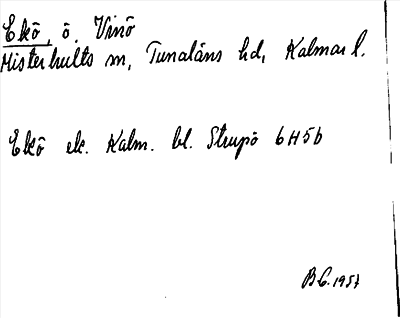 Ekö, ö. Vinö
Misterhults sn, Tunaläns hd, Kalmar l.
Ekö ek. Kalm. bl. Strupö 6H5b
B.C. 1957